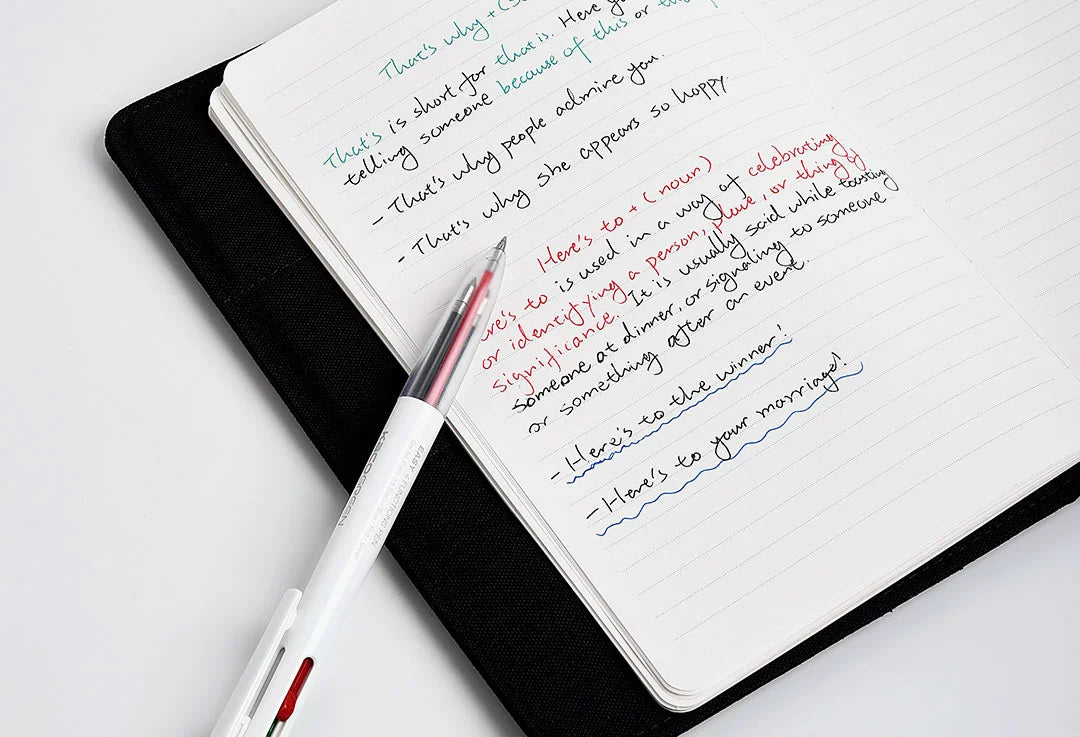 That's why + (
that is. Here
That's is short for
because of this or
telling someone
- That's why people admire you.
- That's why she appears so happy.
Here's to + (noun)
ere's to is used in a way of celebrating
or identifying a person, place, or thing of
significance. It is usually said while toasting
someone at dinner, or signaling to someone
or something after an event.
- Here's to the winner!
- Here's to your marriage!
KACOGREEN
EASY 4 FUNCTIONS PEN